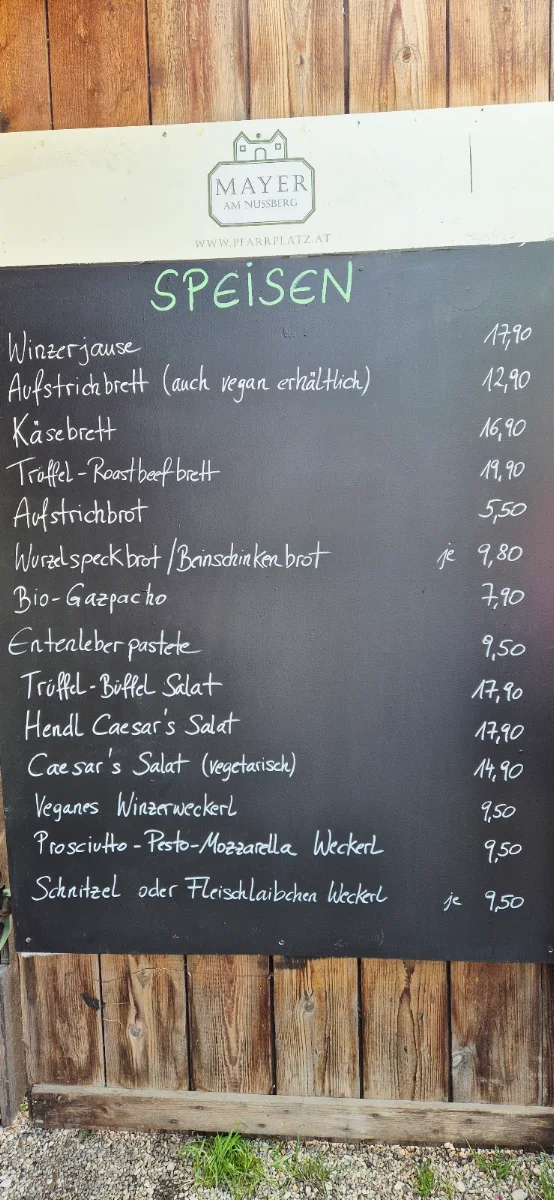 MAYER
AM NUSSBERG
WWW.PFARRPLATZ.AT
SPEISEN
Winzerjause 17,90
Aufstrichbrett (auch vegan erhältlich) 12,90
Käsebrett 16,90
Trüffel-Roastbeefbrett 19,90
Aufstrichbrot 5,50
Wurzelspeckbrot/Beinschinkenbrot je 9,80
Bio-Gazpacho 7,90
Entenleberpastete 9,50
Trüffel-Büffel Salat 17,90
Hendl Caesar's Salat 17,90
Caesar's Salat (vegetarisch) 14,90
Veganes Winzerweckerl 9,50
Prosciutto-Pesto-Mozzarella Weckerl 9,50
Schnitzel oder Fleischlaibchen Weckerl je 9,50